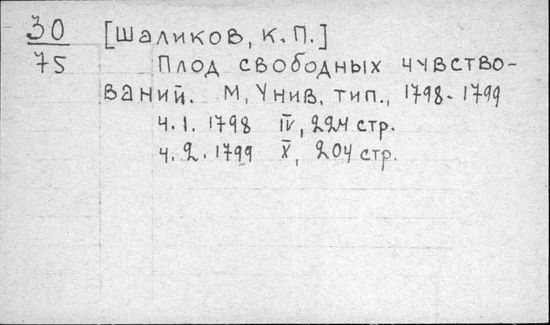 30 [Шаликов, К.П.]
75 Плод свободных чувство-
ваний. М, Унив. тип., 1798-1799
ч.1. 1798 IV, 224 стр.
ч.2. 1799 X, 204 стр.